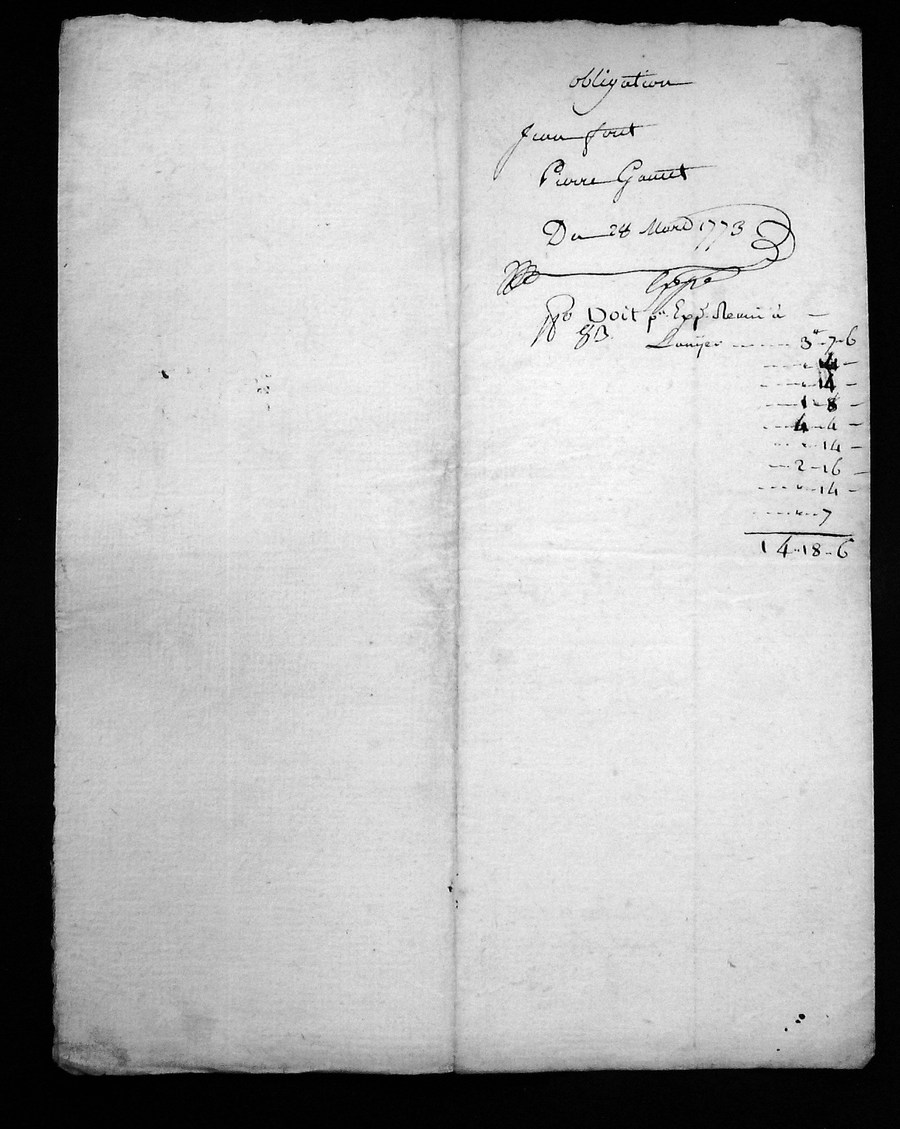 obligation
Jean fort
Pierre
Du 28 Mars 1773
Expé
Doit pr. Expn. Remis à
83
3tt-7-6
4
14
1-8
4-4
14
2-16
14
7
14-18-6